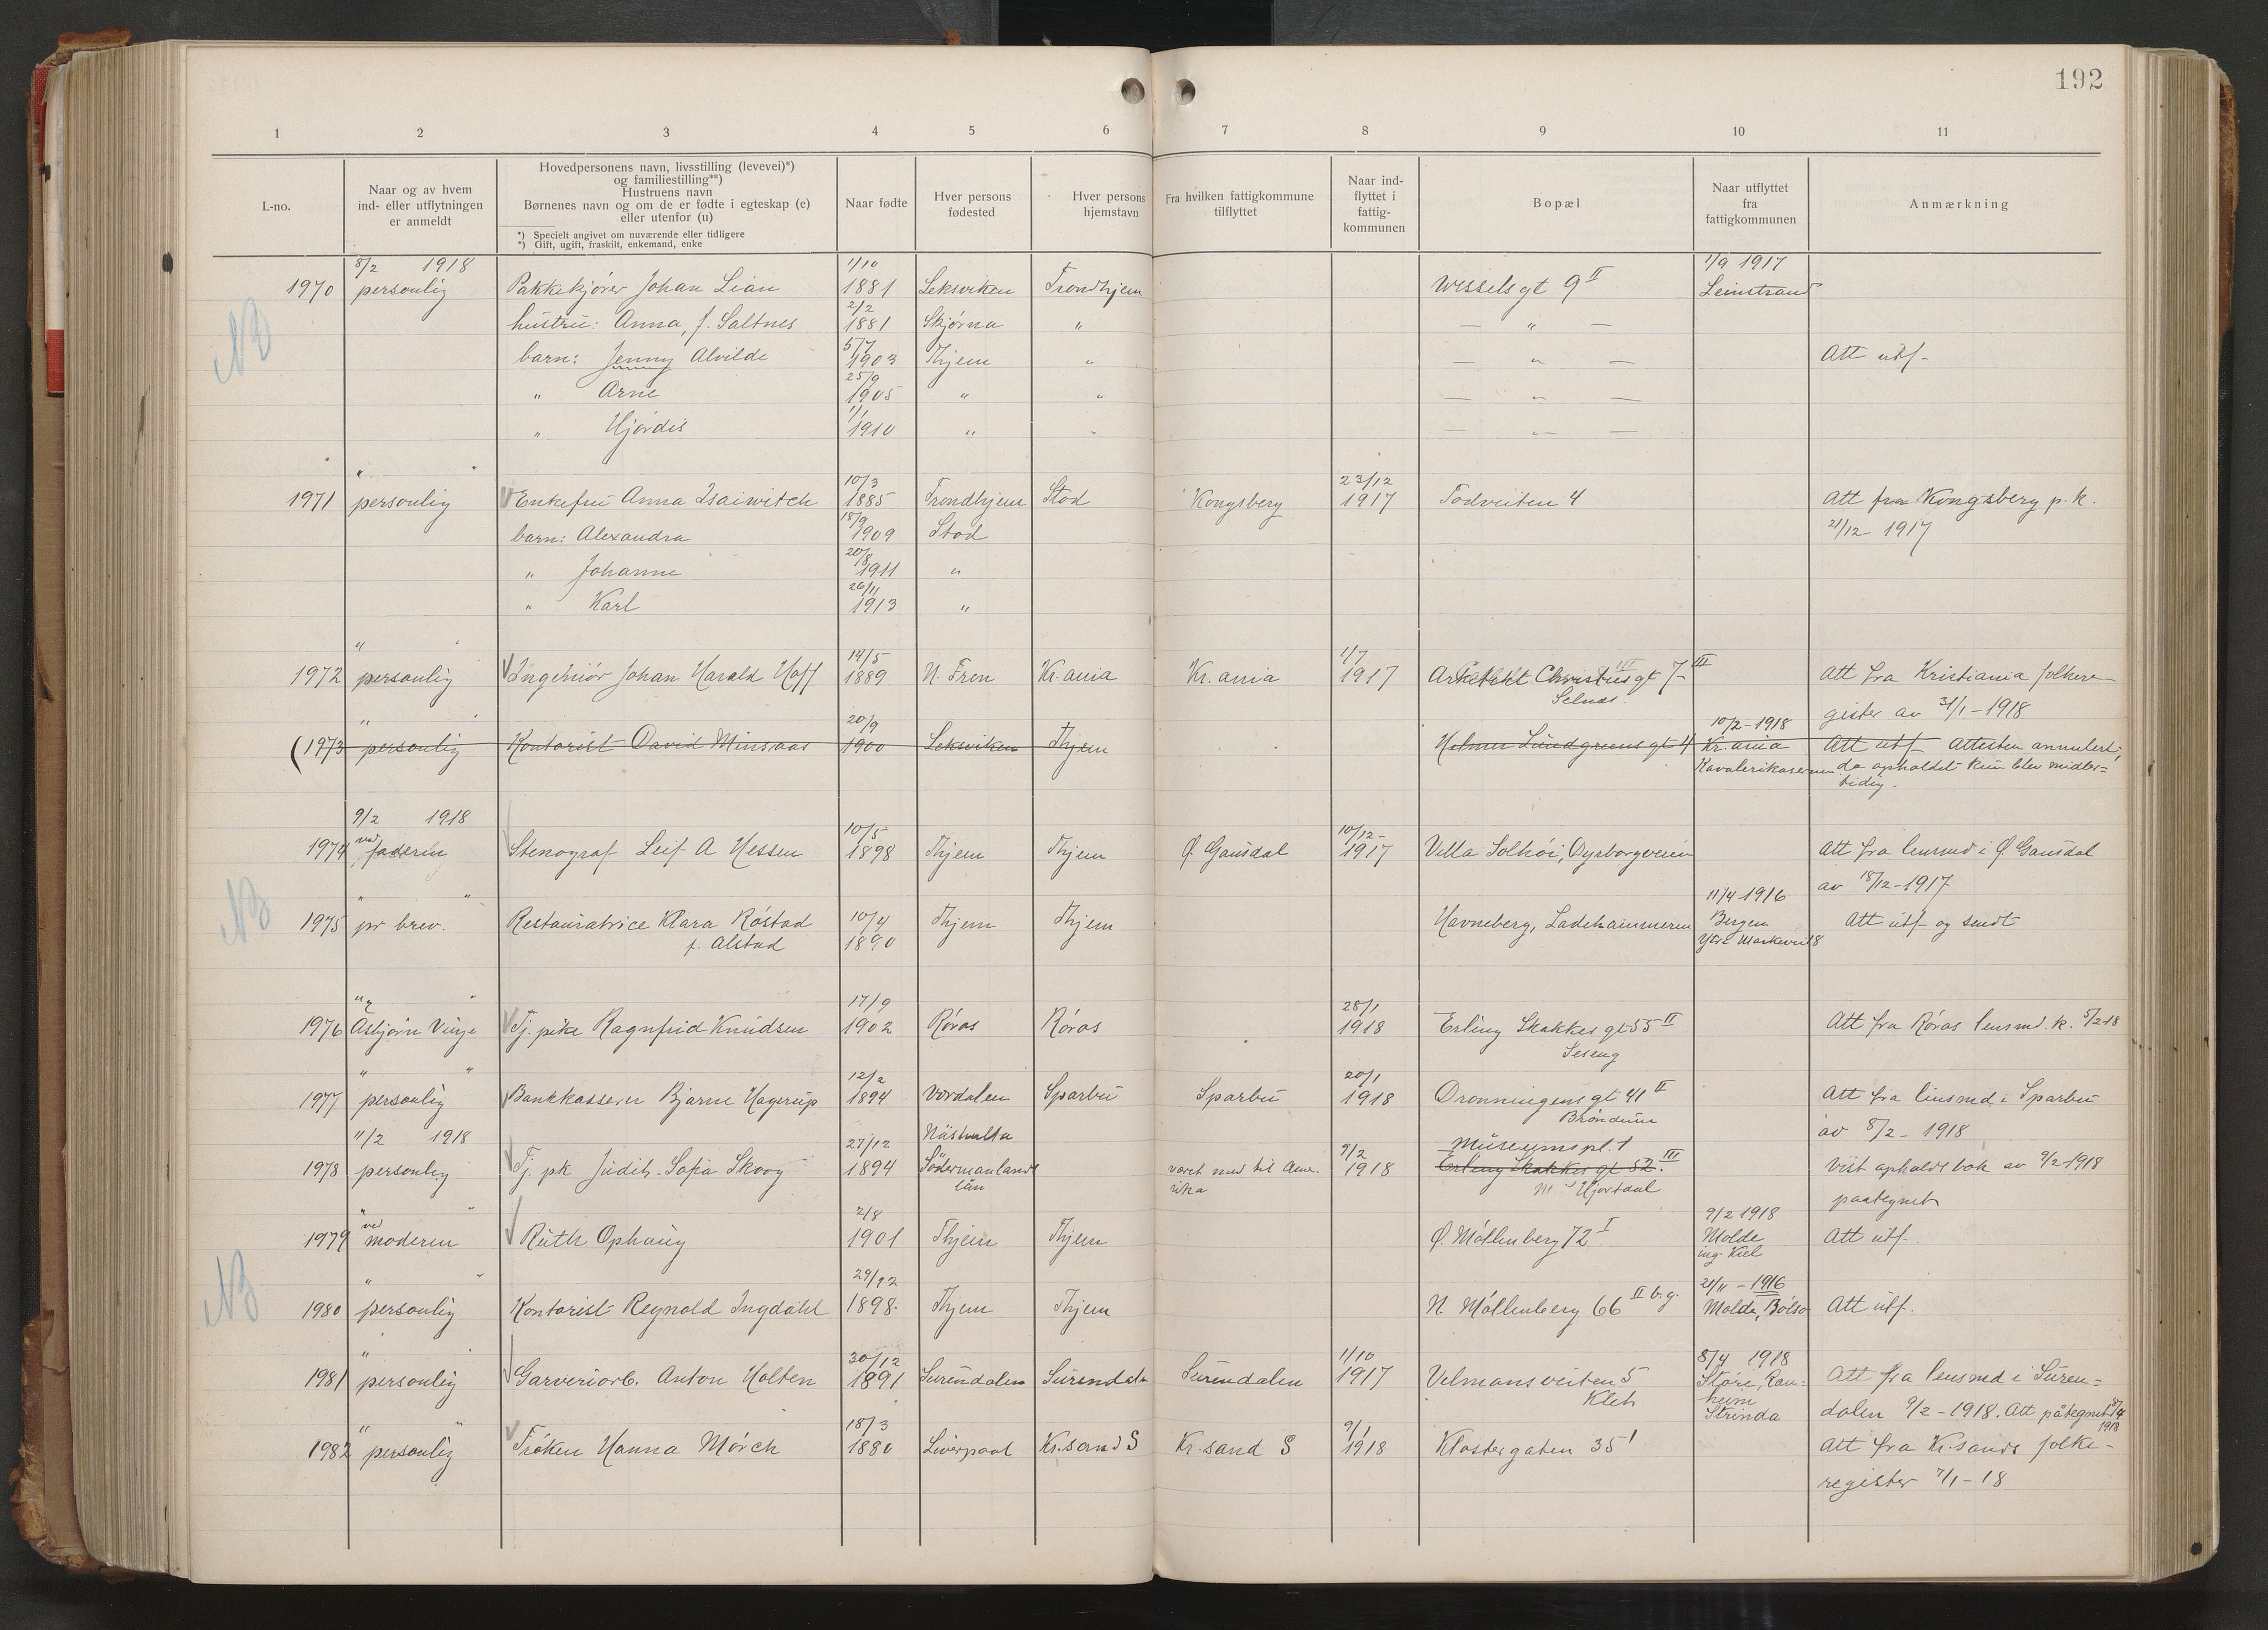 192
1 2 3 4 5 6 7 8 9 10 11
L-no.
Naar og av hvem
ind- eller utflytningen
er anmeldt
Hovedpersonens navn, livsstilling (levevei)*)
og familiestilling**)
Hustruens navn
Børnenes navn og om de er fødte i egteskap (e)
eller utenfor (u)
*) Specielt angivet om nuværende eller tidligere
*) Gift, ugift, fraskilt, enkemand, enke
Naar fødte
Hver persons
fødested
Hver persons
hjemstavn
Fra hvilken fattigkommune
tilflyttet
Naar ind-
flyttet i
fattig-
kommunen
Bopæl
Naar utflyttet
fra
fattigkommunen
Anmærkning
8/2 1918 1/10 1/9 1917
1970 personlig Pakkekjører Johan Lian 1881 Leksviken Trondhjem Wesselsgt 9 II Leinstrand
NB
2/2
hustru: Anna, f. Saltnes 1881 Skjørna " — " —
5/7
barn: Jenny Alvilde 1903 Thjem " — " — Att utf-
25/9
" Arne 1905 " " — " —
1/1
" Hjørdis 1910 " " — " —
" " 10/3 23/12
1971 personlig Enkefru Anna Isaiwitch 1885 Trondhjem Stod Kongsberg 1917 Todveiten 4 Att fra Kongsberg p.k.
18/9 21/12- 1917
barn: Alexandra 1909 Stod
20/8
" Johanne 1911 "
26/11
" Karl 1913 "
" " 14/5 1/7
1972 personlig Ingeniør Johan Harald Hoff 1889 N. Fron Kr.ania Kr.ania 1917 Arkitekt Christiesgt 7 III Att fra Kristiania folkere-
Selnæs gister av 31/1-1918
" " 20/9 10/2-1918
(1973 personlig Kontorist David Minsaas 1900 Leksviken Thjem Helmer Lundgreensgt 4 Kr.ania Att utf Attesten annulert,
Kavalerikasernen da opholdet kun blev midler=
tidig.
9/2 1918 10/5 10/12-
1974 ved faderen Stenograf Leif A Hessen 1898 Thjem Thjem Ø. Gausdal 1917 Villa Solhøi, Dyrborgveien Att fra lensmd i Ø. Gausdal
av 18/12-1917
NB
" " 11/4-1916
1975 pr brev. Restauratrice Klara Røstad 10/4 Thjem Thjem Havneberg, Ladehammeren Bergen Att utf- og sendt
f. Alstad 1890
" " 17/9 28/1
1976 Asbjørn Vinje Tj. pike Ragnfrid Knudsen 1902 Røros Røros 1918 Erling Skakkes gt 55 II Att fra Røros lensmd.k. 5/2 18
Seseng
" " 12/2 20/1
1977 personlig Bankkasserer Bjarne Hagerup 1894 Værdalen Sparbu Sparbu 1918 Dronningensgt 41 II Att fra lensmd i Sparbu
Brøndum av 8/2-1918
11/2 1918 27/12 9/2 Museumspl. 1
1978 personlig Tj. pk Judith Sofia Skoog 1894 Södermanlands været med til Ame- 1918 Erling Skakkes gt 52 III Vist opholdsbok av 9/2 1918
län rika Hjortdal paategnet
" " 2/8 9/2 1918
1979 ved moderen Ruth Ophaug 1901 Thjem Thjem Ø. Møllenberg 72 I Molde Att utf.
ing. Kiel
NB
" " 29/12 21/11-1916
1980 personlig Kontorist Reynold Ingdahl 1898. Thjem Thjem N Møllenberg 66 II b.g. Molde, Bolsø Att utf.
" " 30/12 1/10 8/4 1918
1981 personlig Garveriarb. Anton Holten 1891 Surendalen Surendalen Surendalen 1917 Velmansveiten 5 Støre, Ran= Att fra lensmd i Suren=
Kleh heim
Strinda dalen 9/2-1918. Att påtegnet 8/4
1918
" " 18/3 9/1
1982 personlig Frøken Hanna Mørch 1880 Liverpool Kr.sand S Kr.sand S 1918 Klostergaten 35 I Att fra Kr.sands folke-
register 7/1-18